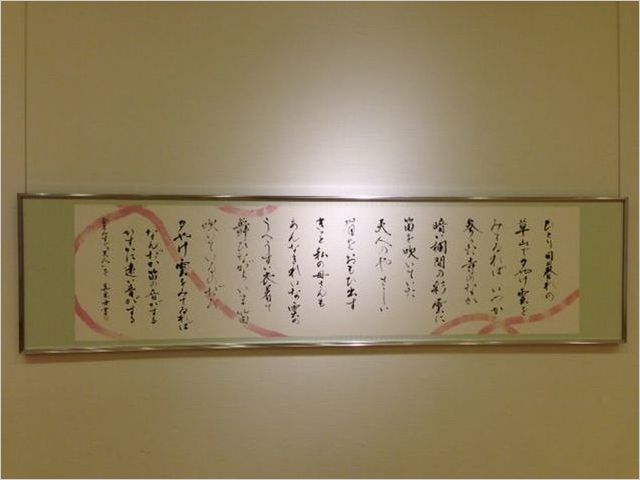 ひとりの日暮れの
草山で夕やけ雲を
みてゐれば いつか
参つた寺のなか
暗い欄間の彩雲に
笛を吹いてゐた
天人のやさしい
眉をおもひ出す
きつと私の母さんも
あんなきれいな雲の
うへでうすい衣着て
舞ひながらいま笛
吹いてゐるのだろ
夕やけ雲をみてゐれば
なんだか笛の音がする
かすかに遠い音がする